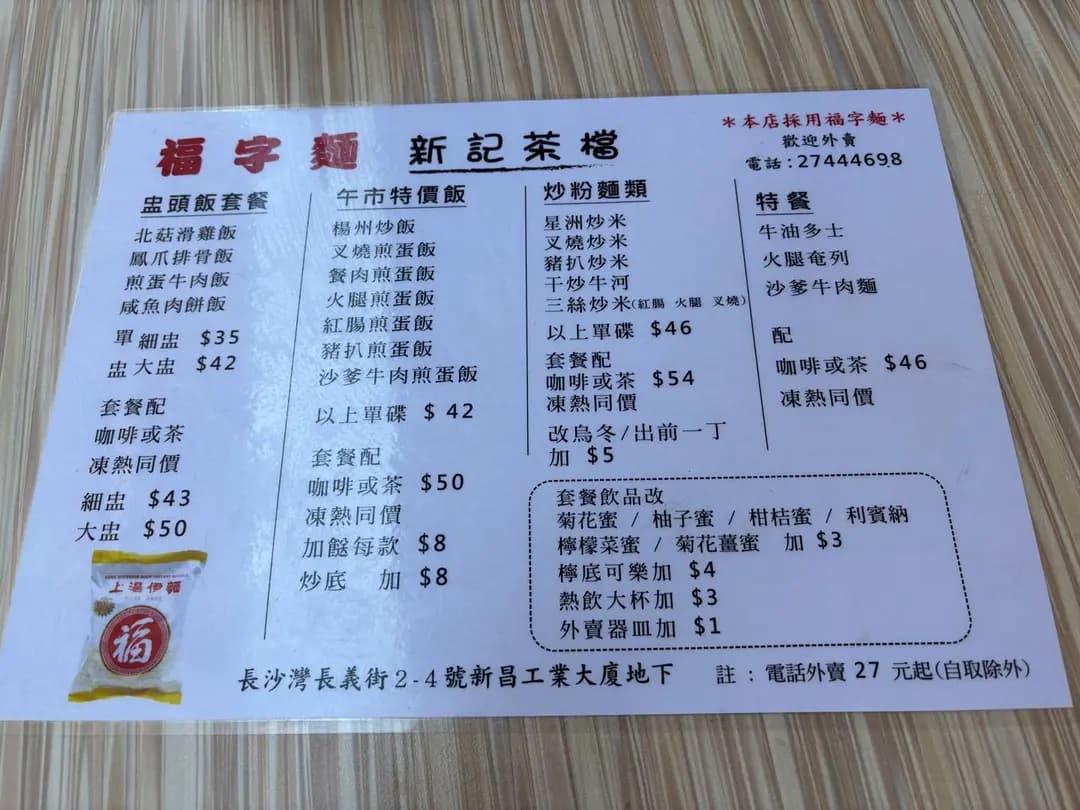 福字麵 新記茶檔
＊本店採用福字麵＊
歡迎外賣
電話:27444698
盅頭飯套餐
北菇滑雞飯
鳳爪排骨飯
煎蛋牛肉飯
咸魚肉餅飯
單 細盅 $35
盅 大盅 $42
套餐配
咖啡或茶
凍熱同價
細盅 $43
大盅 $50
上湯伊麵
福
午市特價飯
楊州炒飯
叉燒煎蛋飯
餐肉煎蛋飯
火腿煎蛋飯
紅腸煎蛋飯
豬扒煎蛋飯
沙爹牛肉煎蛋飯
以上單碟 $ 42
套餐配
咖啡或茶 $50
凍熱同價
加餸每款 $8
炒底 加 $8
炒粉麵類
星洲炒米
叉燒炒米
豬扒炒米
干炒牛河
三絲炒米(紅腸 火腿 叉燒)
以上單碟 $46
套餐配
咖啡或茶 $54
凍熱同價
改烏冬/出前一丁
加 $5
特餐
牛油多士
火腿奄列
沙爹牛肉麵
配
咖啡或茶 $46
凍熱同價
套餐飲品改
菊花蜜 / 柚子蜜 / 柑桔蜜 / 利賓納
檸檬菜蜜 / 菊花薑蜜 加 $3
檸底可樂加 $4
熱飲大杯加 $3
外賣器皿加 $1
長沙灣長義街2-4號新昌工業大廈地下
註 : 電話外賣 27 元起(自取除外)